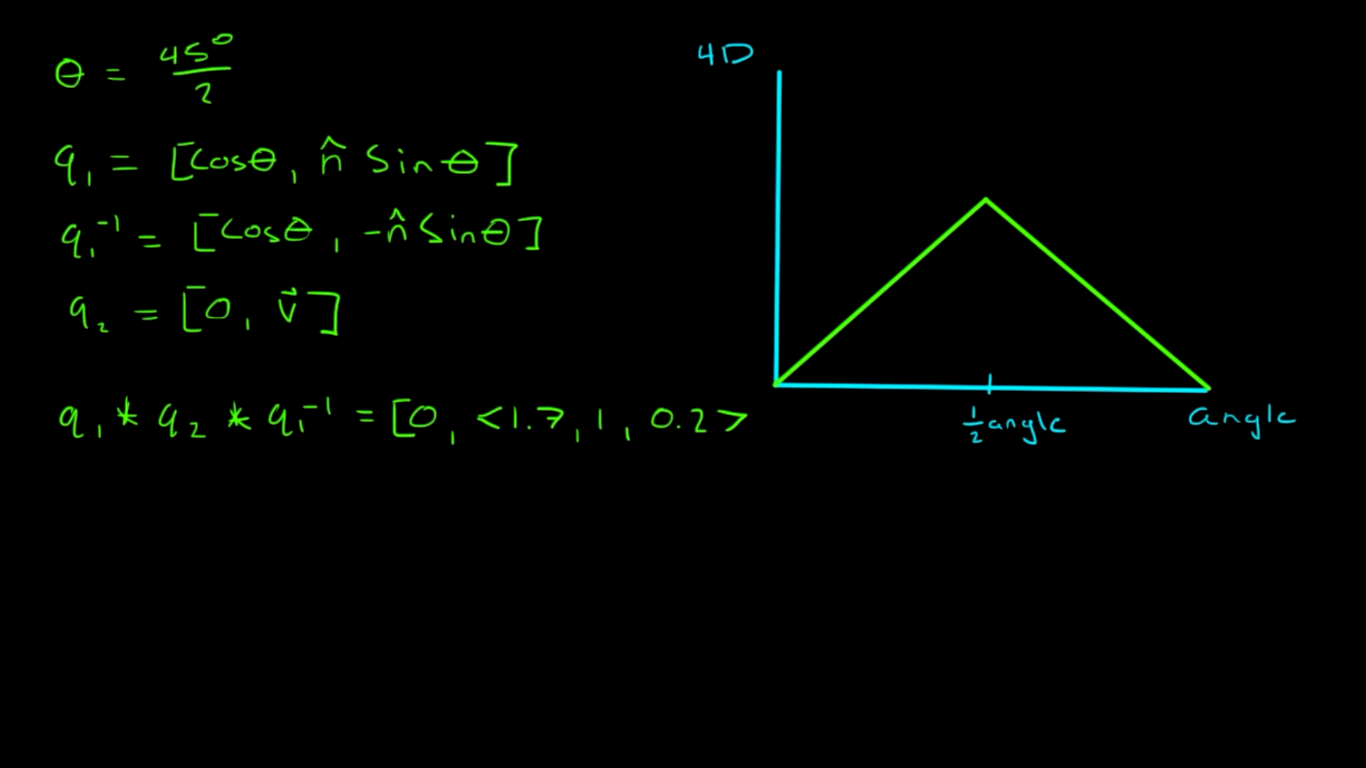 θ = 45° / 2
q₁ = [cosθ, n̂ sinθ]
q₁⁻¹ = [cosθ, -n̂ sinθ]
q₂ = [0, v⃗]
q₁ * q₂ * q₁⁻¹ = [0, <1.7, 1, 0.2>
4D
½ angle
angle